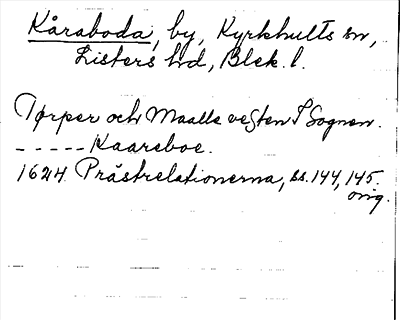 Kåraboda, by, Kyrkhults sn,
Listers hd, Blek. l.
Tørper och Maalle vesten I Sognen.
- - - - - Kaareboe.
1624 Prästrelationerna, ss. 144, 145.
orig.